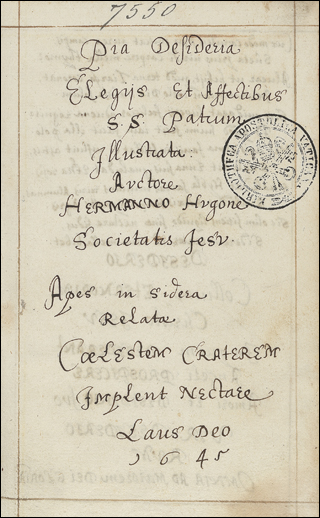 7550
Pia Desideria
Elegijs Et Affectibus
S.S. Patium
Illustrata.
Avctore
HERMANNO HVgone
Societatis Iesv.
Apes in sidera
Relata
CœLESTEM CRATEREM
Implent Nectare
Laus Deo
1645
BIBLIOTHECA APOSTOLICA VATICANA